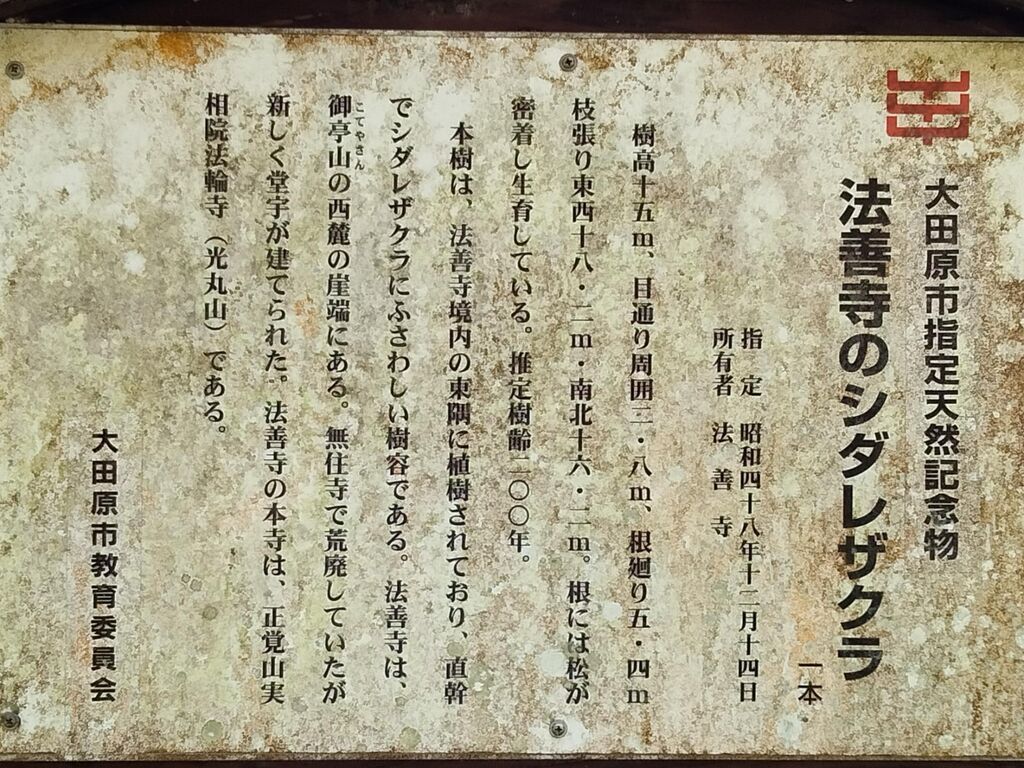 大田原市指定天然記念物
法善寺のシダレザクラ
一本
指定 昭和四十八年十二月十四日
所有者 法善寺
樹高十五m、目通り周囲三・八m、根廻り五・四m
枝張り東西十八・二m・南北十六・二m。根には松が
密着し生育している。推定樹齢二〇〇年。
本樹は、法善寺境内の東隅に植樹されており、直幹
でシダレザクラにふさわしい樹容である。法善寺は、
御亭山の西麓の崖端にある。無住寺で荒廃していたが
こてやさん
新しく堂宇が建てられた。法善寺の本寺は、正覚山実
相院法輪寺（光丸山）である。
大田原市教育委員会